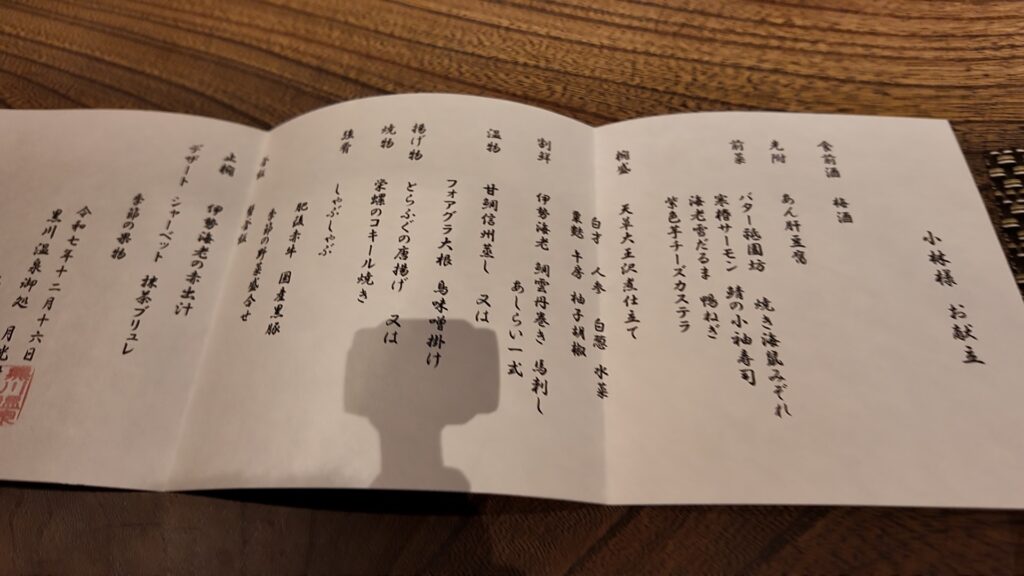 小林様 お献立
食前酒 梅酒
先附 あん肝豆腐 焼き海鼠みぞれ
前菜 バター祗園坊 鯖の小袖寿司
寒椿サーモン 鴨ねぎ
海老雪だるま
紫色芋チーズカステラ
椀盛 天草大王沢煮仕立て
白才 人参 白葱 水菜
粟麩 牛蒡 柚子胡椒
割鮮 伊勢海老 鯛雲丹巻き 馬刺し
あしらい一式
温物 甘鯛信州蒸し 又は
フォアグラ大根 鳥味噌掛け
揚げ物 とらふぐの唐揚げ 又は
焼物 栄螺のコキール焼き
強肴 しゃぶしゃぶ
肥後赤牛 国産黒豚
季節の野菜盛合せ
止椀 伊勢海老の赤出汁
デザート シャーベット 抹茶ブリュレ
季節の果物
令和七年十二月十六日
黒川温泉御処 月